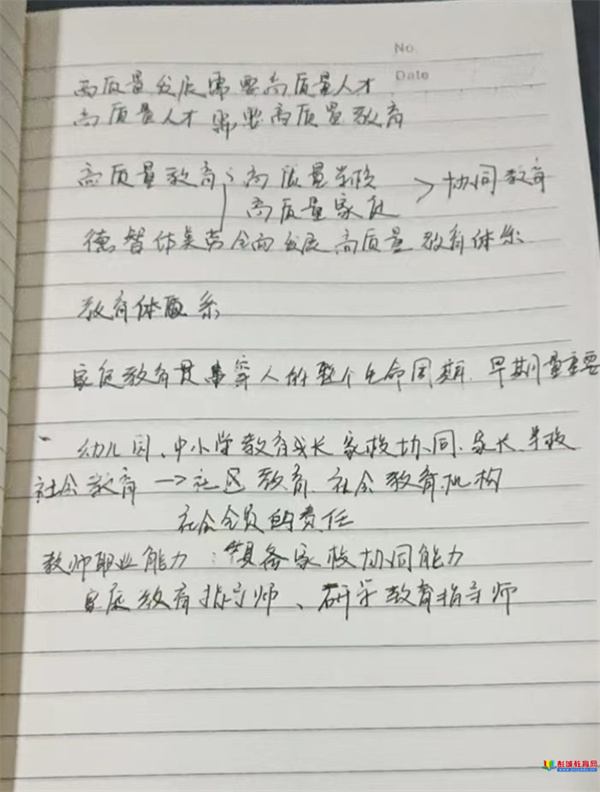 No.
Date
高质量发展需要高质量人才
高质量人才需要高质量教育
高质量教育：高质量学校 > 协同教育
高质量家庭
德智体美劳全面发展高质量教育体系
教育体系
家庭教育贯穿人的整个生命周期.早期最重要
幼儿园、中小学教育成长家校协同.家长.学校
社会教育→社区教育.社会教育机构
社会全员的责任
教师职业能力：预备家校协同能力
家庭教育指导师、研学教育指导师
彭城教育网